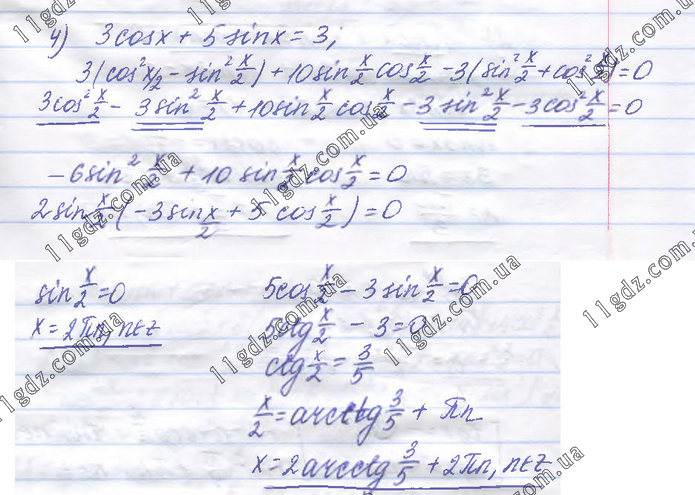 4) 3cosx + 5sinx = 3;
3(cos²x/2 - sin²x/2) + 10sin x/2 cos x/2 - 3(sin²x/2 + cos²x/2) = 0
3cos²x/2 - 3sin²x/2 + 10sin x/2 cos x/2 - 3sin²x/2 - 3cos²x/2 = 0
-6sin²x/2 + 10sin x/2 cos x/2 = 0
2sin x/2 (-3sin x/2 + 5 cos x/2) = 0
sin x/2 = 0
x = 2πn, n∈z
5cos x/2 - 3sin x/2 = 0
5ctg x/2 - 3 = 0
ctg x/2 = 3/5
x/2 = arcctg 3/5 + πn
x = 2arcctg 3/5 + 2πn, n∈z
11gdz.com.ua
11gdz.com.ua
11gdz.com.ua
11gdz.com.ua
11gdz.com.ua
11gdz.com.ua
11gdz.com.ua
11gdz.com.ua
11gdz.com.ua